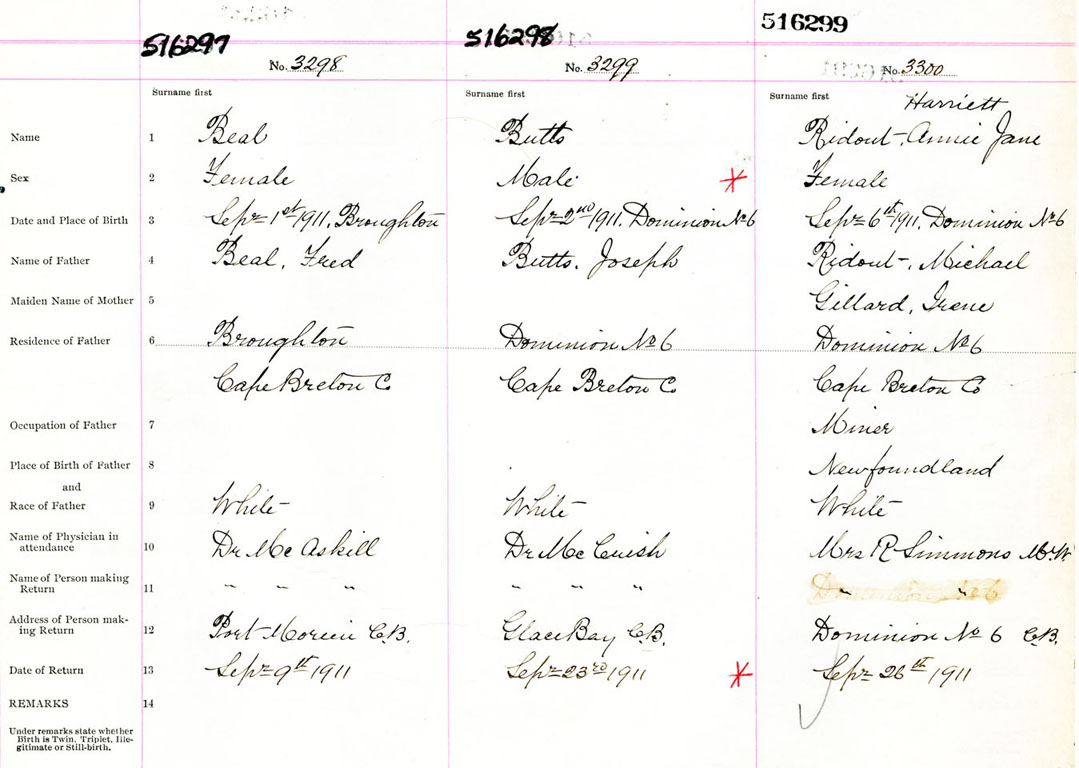 516297 516298 516299
No. 3298 No. 3299 No. 3300
Surname first Surname first Surname first Harriett
Name 1 Beal Butts Ridout, Annie Jane
Sex 2 Female Male Female
Date and Place of Birth 3 Sept 1st 1911, Broughton Sept 2nd 1911, Dominion No 6 Sept 6th 1911, Dominion No 6
Name of Father 4 Beal, Fred Butts, Joseph Ridout, Michael
Maiden Name of Mother 5 Gillard, Irene
Residence of Father 6 Broughton Dominion No 6 Dominion No 6
Cape Breton Co Cape Breton Co Cape Breton Co
Occupation of Father 7 Miner
Place of Birth of Father 8 Newfoundland
and
Race of Father 9 White White White
Name of Physician in
attendance 10 Dr McAskill Dr McCuish Mrs R Simmons
Name of Person making
Return 11 " " " " " " " "
Address of Person mak-
ing Return 12 Port Morien C.B. Glace Bay C.B. Dominion No 6 C.B.
Date of Return 13 Sept 9th 1911 Sept 23rd 1911 Sept 26th 1911
REMARKS 14
Under remarks state whether
Birth is Twin, Triplet, Ille-
gitimate or Still-birth.